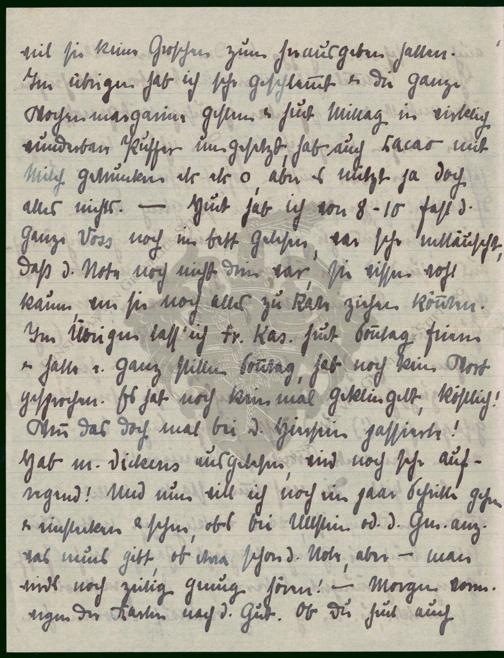 weil sie keine Groschen zum herausgeben hatten.
Im übrigen hab ich sehr geschlemmt & die ganze
Wochenmargarine gestern & heut Mittag in wirklich
wunderbare Puffer umgesetzt, hab auch Cacao mit
Milch getrunken etc etc o, aber es nützt ja doch
alles nichts. — Heut hab ich von 8-10 fast d.
ganze Voss noch im bett gelesen, war sehr enttäuscht,
daß d. Note noch nicht drin war, sie wissen wohl
kaum wen sie noch alles zu Rate ziehen könnten.
Im Übrigen lass' ich Fr. Kas. heut Sonntag feiern
& halte e. ganz stillen Sonntag, hab noch kein Wort
gesprochen. Es hat noch kein mal geklingelt, köstlich!
Wenn das doch mal bei d. passierte!
Hab m. Dickens ausgelesen, wird noch sehr auf-
regend! Und nun will ich noch ein paar Schritte gehen
& einstecken & sehen, obs bei Ullstein od. d. Gen. anz.
was neues gibt, ob etwa schon d. Note, aber — man
wirds noch zeitig genug hören! — Morgen
wegen der Karten nach d. Ob du heut auch